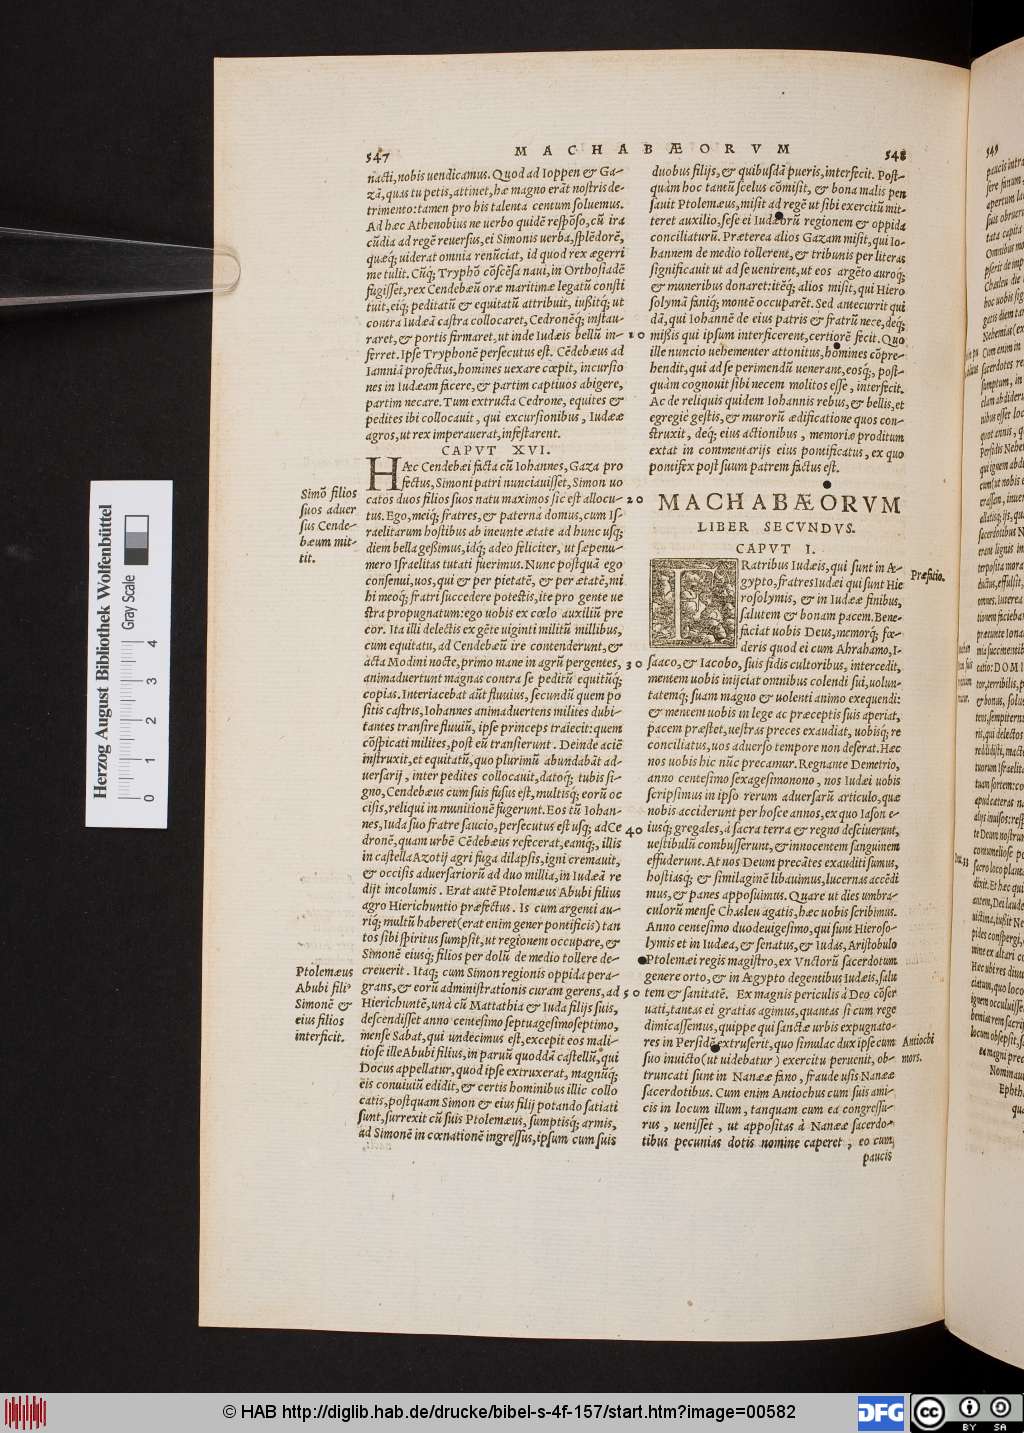 547
MACHABÆORVM
548
nacti, nobis uendicamus. Quod ad Ioppen & Ga-
zã, quas tu petis, attinet, hæ magno erãt nostris de-
trimento: tamen pro his talenta centum soluemus.
Ad hæc Athenobius ne uerbo quidẽ respõso, cũ ira
cũdia ad regẽ reuersus, ei Simonis uerba, splẽdorẽ,
quæq; uiderat omnia renũciat, id quod rex ægerri
me tulit. Cũq; Tryphõ cõscẽsa naui, in Orthosiadẽ
fugisset, rex Cendebæũ oræ maritimæ legatũ consti
tuit, eiq; peditatũ & equitatũ attribuit, iußitq; ut
contra Iudæã castra collocaret, Cedronẽq; instau-
raret, & portis firmaret, ut inde Iudæis bellũ in-
ferret. Ipse Tryphonẽ persecutus est. Cẽdebæus ad
Iamniã profectus, homines uexare cœpit, incursio
nes in Iudæam facere, & partim captiuos abigere,
partim necare. Tum extructa Cedrone, equites &
pedites ibi collocauit, qui excursionibus, Iudææ
agros, ut rex imperauerat, infestarent.
CAPVT XVI.
HÆc Cendebæi facta cũ Iohannes, Gaza pro
fectus, Simoni patri nunciauisset, Simon uo
catos duos filios suos natu maximos sic est allocu-
tus. Ego, meiq; fratres, & paterna domus, cum Is-
raelitarum hostibus ab ineunte ætate ad hunc usq;
diem bella geßimus, idq; adeo feliciter, ut sæpenu-
mero Israelitas tutati fuerimus. Nunc postquã ego
consenui, uos, qui & per pietatẽ, & per ætatẽ, mi
hi meoq; fratri succedere potestis, ite pro gente ue
stra propugnatum: ego uobis ex cœlo auxiliũ pre
cor. Ita illi delectis ex gẽte uiginti militũ millibus,
cum equitatu, ad Cendebæũ ire contenderunt, &
acta Modini nocte, primo mane in agrũ pergentes,
animaduertunt magnas contra se peditũ equitũq;
copias. Interiacebat aũt fluuius, secundũ quem po
sitis castris, Iohannes animaduertens milites dubi-
tantes transire fluuiũ, ipse princeps traiecit: quem
cõspicati milites, post eũ transierunt. Deinde aciẽ
instruxit, et equitatũ, quo plurimũ abundabãt ad-
uersarij, inter pedites collocauit, datoq; tubis si-
gno, Cendebæus cum suis fusus est, multisq; eorũ oc
cisis, reliqui in munitionẽ fugerunt. Eos tũ Iohan-
nes, Iuda suo fratre saucio, persecutus est usq; ad Ce
dronẽ, quam urbẽ Cẽdebæus refecerat, eamq;, illis
in castella Azotij agri fuga dilapsis, igni cremauit,
& occisis aduersariorũ ad duo millia, in Iudæã re
dijt incolumis. Erat autẽ Ptolemæus Abubi filius
agro Hierichuntio præfectus. Is cum argenti au-
riq; multũ haberet (erat enim gener pontificis) tan
tos sibi spiritus sumpsit, ut regionem occupare, &
Simonẽ eiusq; filios per dolũ de medio tollere de-
creuerit. Itaq; cum Simon regionis oppida pera-
grans, & eorũ administrationis curam gerens, ad
Hierichuntẽ, unà cũ Mattathia & Iuda filijs suis,
descendisset anno centesimo septuagesimoseptimo,
mense Sabat, qui undecimus est, excepit eos mali-
tiose ille Abubi filius, in paruũ quoddã castellũ, qui
Docus appellatur, quod ipse extruxerat, magnũq;
eis conuiuiũ edidit, & certis hominibus illic collo
catis, postquam Simon & eius filij potando satiati
sunt, surrexit cũ suis Ptolemæus, sumptisq; armis,
ad Simonẽ in cœnationẽ ingressus, ipsum cum suis
Simõ filios
suos aduer
sus Cende-
bæum mit-
tit.
Ptolemæus
Abubi fili⁹
Simonẽ &
eius filios
interficit.
10
20
30
40
50
duobus filijs, & quibusdã pueris, interfecit. Post-
quàm hoc tantũ scelus cõmisit, & bona malis pen
sauit Ptolemæus, misit ad regẽ ut sibi exercitũ mit-
teret auxilio, sese ei Iudæorũ regionem & oppida
conciliaturũ. Præterea alios Gazam misit, qui Io-
hannem de medio tollerent, & tribunis per literas
significauit ut ad se uenirent, ut eos argẽto auroq;
& muneribus donaret: itẽq; alios misit, qui Hiero
solymã faniq; montẽ occuparẽt. Sed antecurrit qui
dã, qui Iohannẽ de eius patris & fratrũ nece, deq;
mißis qui ipsum interficerent, certiorẽ fecit. Quo
ille nuncio uehementer attonitus, homines cõpre-
hendit, qui ad se perimendũ uenerant, eosq;, post-
quàm cognouit sibi necem molitos esse, interfecit.
Ac de reliquis quidem Iohannis rebus, & bellis, et
egregiè gestis, & murorũ ædificatione quos con-
struxit, deq; eius actionibus, memoriæ proditum
extat in commentarijs eius pontificatus, ex quo
pontifex post suum patrem factus est.
MACHABÆORVM
LIBER SECVNDVS.
CAPVT I.
FRatribus Iudæis, qui sunt in Æ-
gypto, fratres Iudæi qui sunt Hie
rosolymis, & in Iudææ finibus,
salutem & bonam pacem. Bene-
faciat uobis Deus, memorq; fœ-
deris quod ei cum Abrahamo, I-
saaco, & Iacobo, suis fidis cultoribus, intercedit,
mentem uobis inijciat omnibus colendi sui, uolun-
tatemq; suam magno & uolenti animo exequendi:
& mentem uobis in lege ac præceptis suis aperiat,
pacem præstet, uestras preces exaudiat, uobisq; re
conciliatus, uos aduerso tempore non deserat. Hæc
nos uobis hic nũc precamur. Regnante Demetrio,
anno centesimo sexagesimonono, nos Iudæi uobis
scripsimus in ipso rerum aduersarũ articulo, quæ
nobis acciderunt per hosce annos, ex quo Iason e-
iusq; gregales, à sacra terra & regno desciuerunt,
uestibulũ combusserunt, & innocentem sanguinem
effuderunt. At nos Deum precãtes exauditi sumus,
hostiasq; & similaginẽ libauimus, lucernas accẽdi
mus, & panes apposuimus. Quare ut dies umbra-
culorũ mense Chasleu agatis, hæc uobis scribimus.
Anno centesimo duodeuigesimo, qui sunt Hieroso-
lymis et in Iudæa, & senatus, & Iudas, Aristobulo
Ptolemæi regis magistro, ex Vnctorũ sacerdotum
genere orto, & in Ægypto degentibus Iudæis, salu
tem & sanitatẽ. Ex magnis periculis à Deo cõser
uati, tantas ei gratias agimus, quantas si cum rege
dimicassemus, quippe qui sanctæ urbis expugnato-
res in Persidẽ extruserit, quo simulac dux ipse cum
suo inuicto (ut uidebatur) exercitu peruenit, ob-
truncati sunt in Nanææ fano, fraude usis Nanææ
sacerdotibus. Cum enim Antiochus cum suis ami-
cis in locum illum, tanquam cum ea congressu-
rus, uenisset, ut appositas à Nanææ sacerdo-
tibus pecunias dotis nomine caperet, eo cum
paucis
Præfatio.
Antiochi
mors.
549
Herzog August Bibliothek Wolfenbüttel
Gray Scale
0 1 2 3 4
© HAB http://diglib.hab.de/drucke/bibel-s-4f-157/start.htm?image=00582
DFG
cc
BY SA